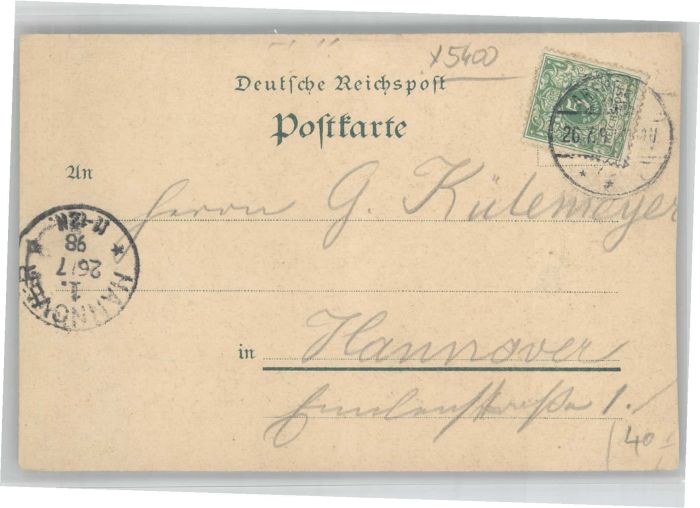 x5400
Deutsche Reichspost
Postkarte
5
26.7.9
An
Herrn G. Külemeyer
HANNOVER
1.
26/7
98
11-12N.
in Hannover
1.
40